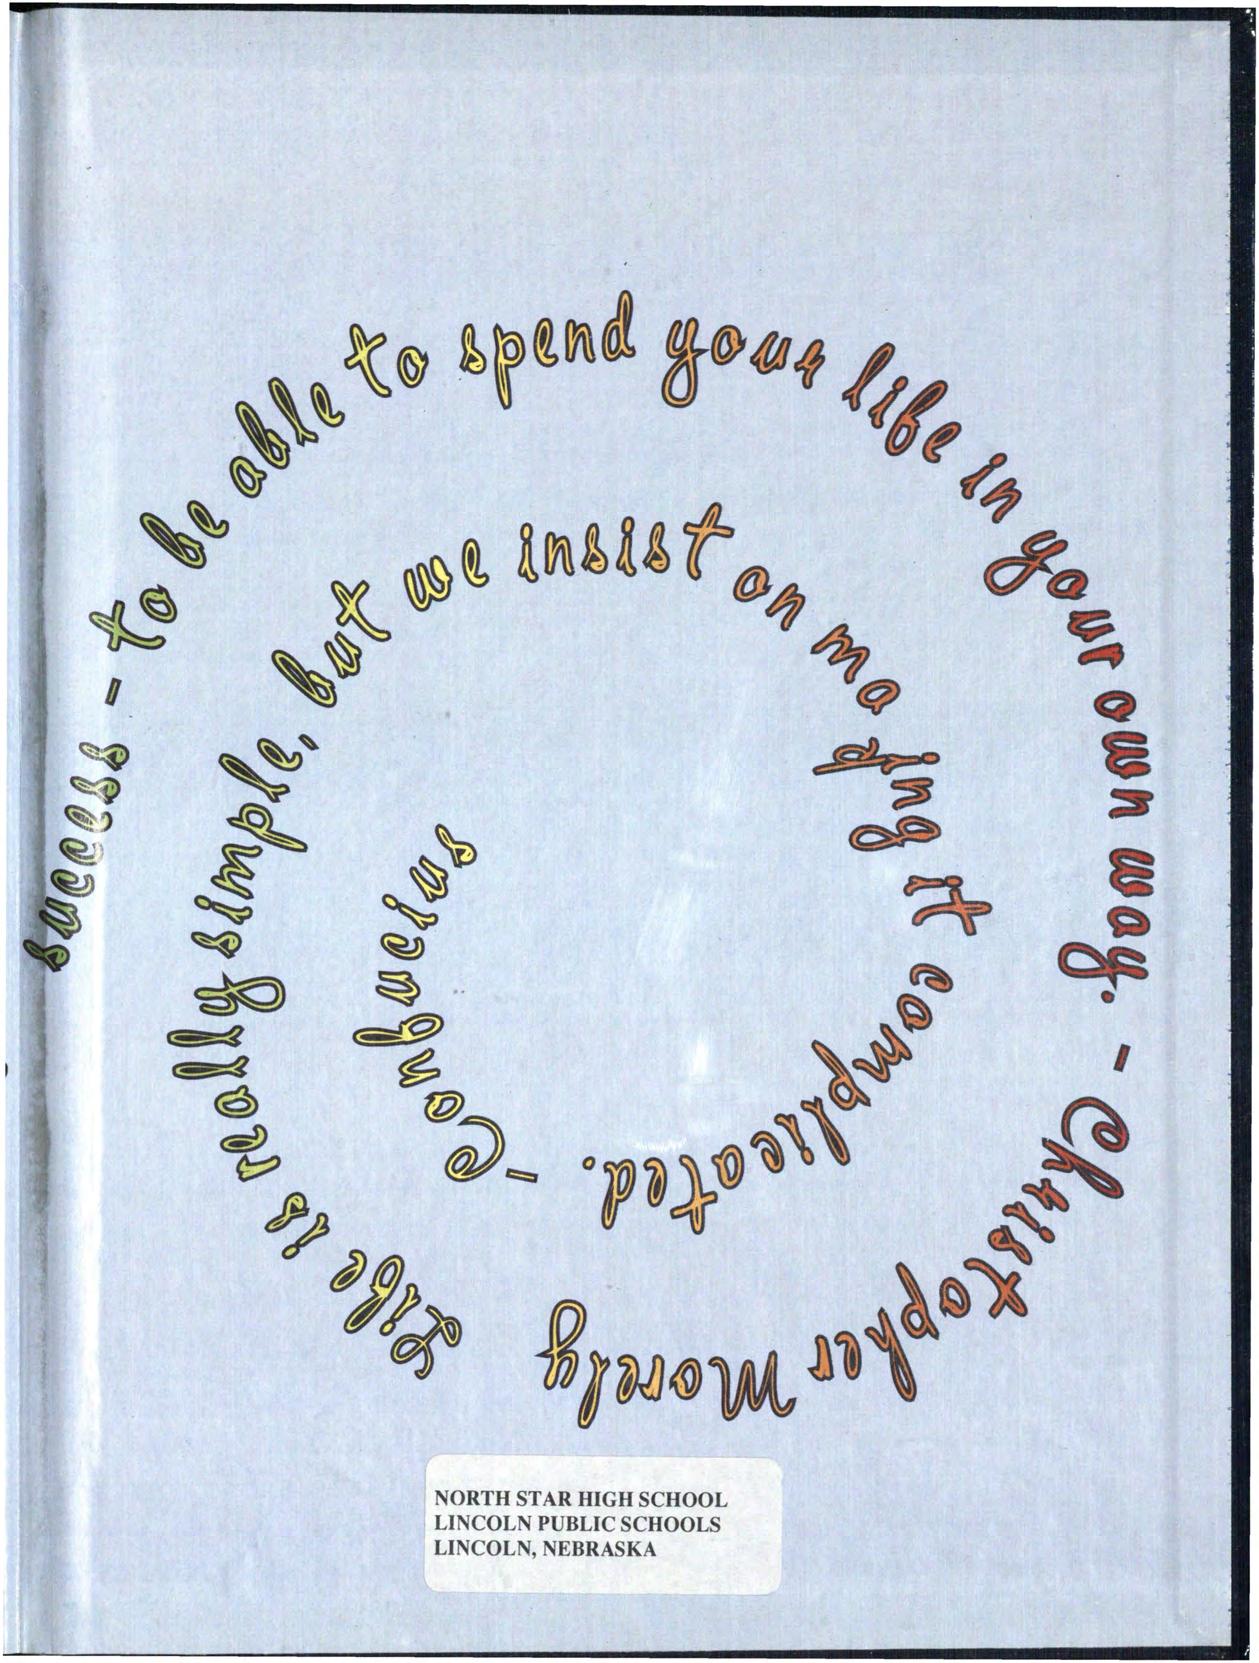 success - to be able to spend your life in your own way. - Christopher Morely
Life is really simple, but we insist on making it complicated. - Confucius
NORTH STAR HIGH SCHOOL
LINCOLN PUBLIC SCHOOLS
LINCOLN, NEBRASKA